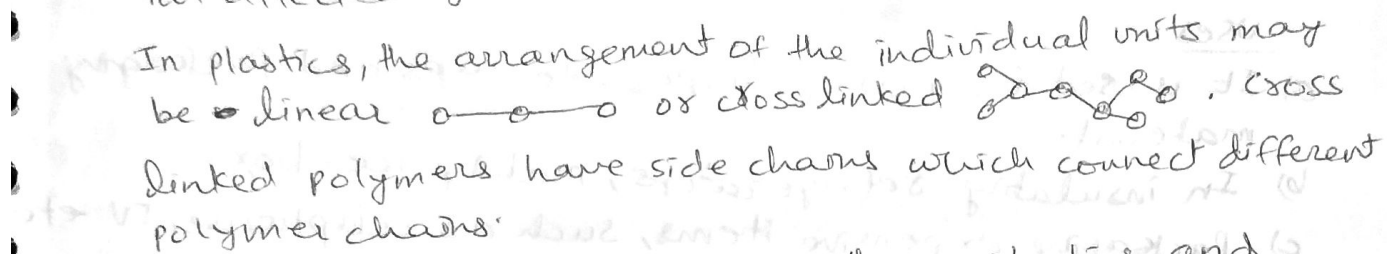 In plastics, the arrangement of the individual units may
be linear or cross linked . Cross
linked polymers have side chains which connect different
polymer chains.